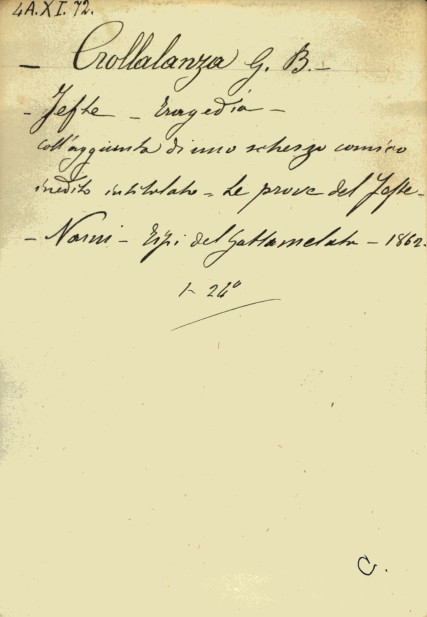 4A.XI.72.
– Crollalanza G. B. –
– Jefte – Tragedia –
coll'aggiunta di uno scherzo comico
inedito intitolato = Le prove del Jefte –
– Narni – Tipi del Gattamelata – 1862.
1 – 24º
C.